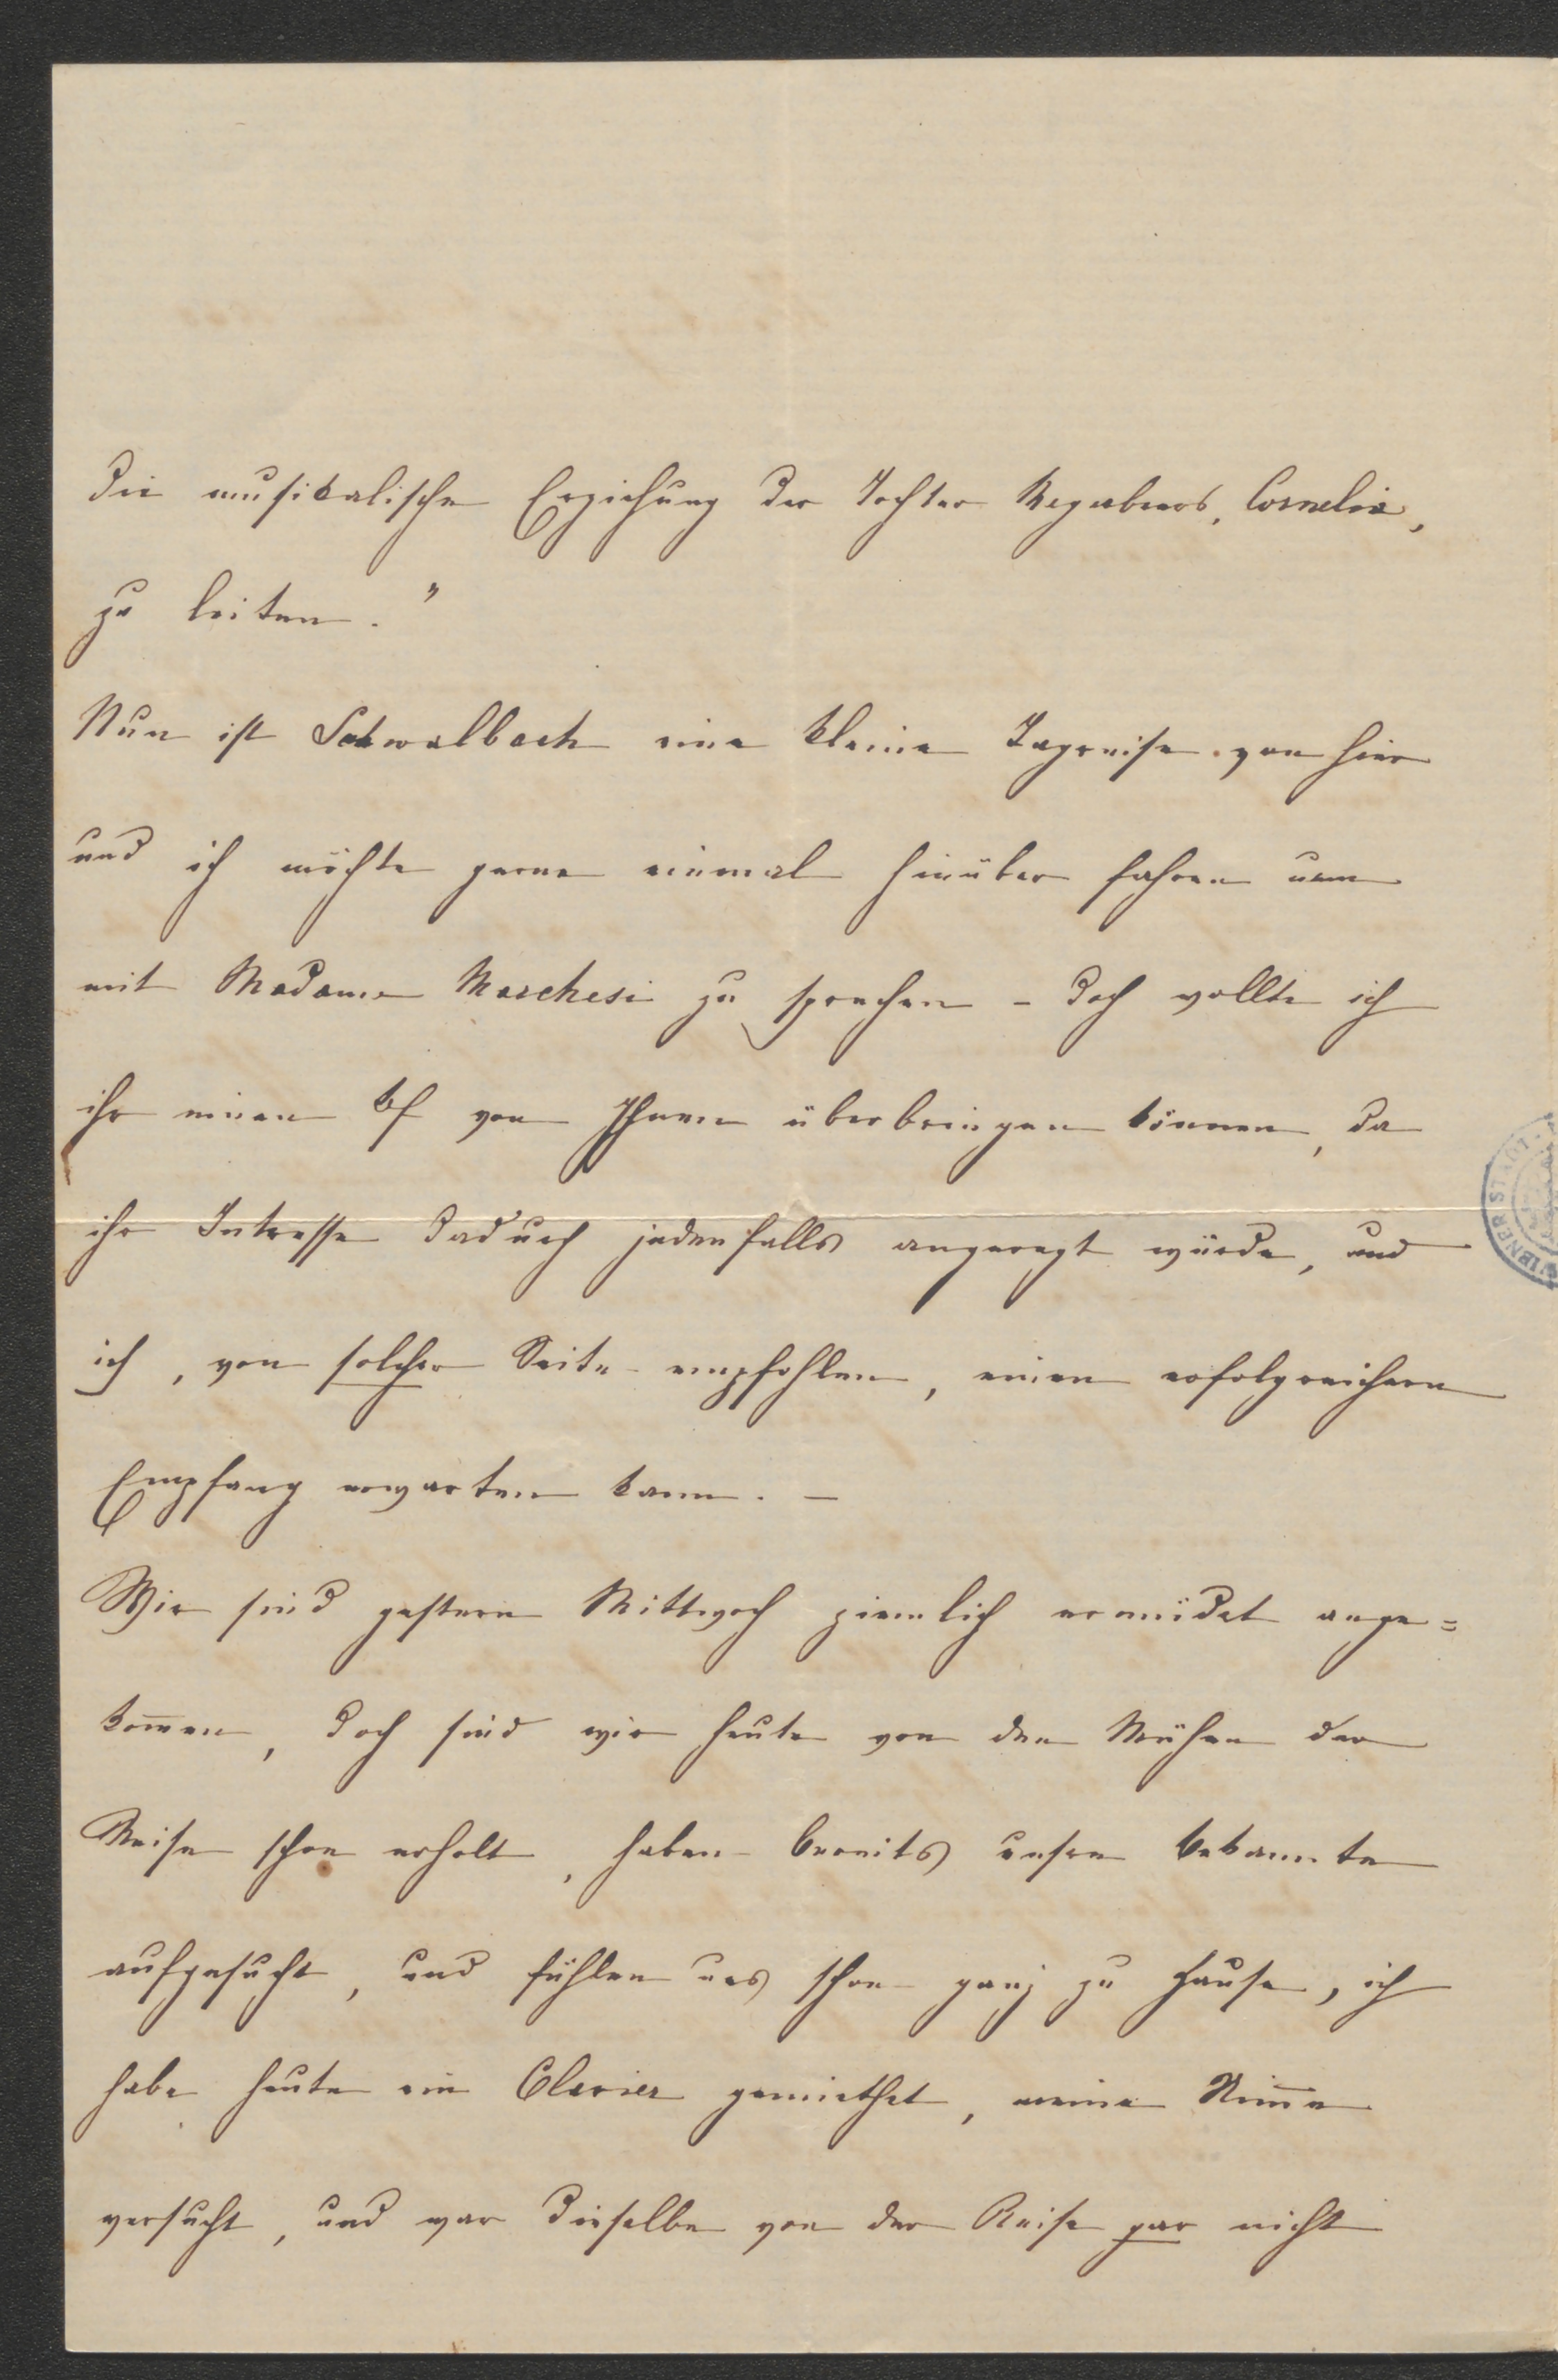 die musikalische Erziehung der Tochter Meyerbeers, Cornelia,
zu leiten."
Nun ist Schwalbach eine kleine Tagreise von hier
und ich möchte gerne einmal hinüber fahren um
mit Madame Marchesi zu sprechen – doch wollte ich
ihr einen Bf von Ihnen überbringen können, da
ihr Intresse dadurch jedenfalls angeregt würde, und
ich, von solcher Seite empfohlen, einen erfolgreichern
Empfang erwarten kann. –
Wir sind gestern Mittwoch ziemlich ermüdet ange=
kom̅en, doch sind wir heute von den Mühen der
Reise schon erholt, haben bereits unsre Bekannte
aufgesucht, und fühlen uns schon ganz zu Hause, ich
habe heute ein Clavier gemiethet, meine Stim̅e
versucht, und war dieselbe von der Reise gar nicht
WIENER STADT-